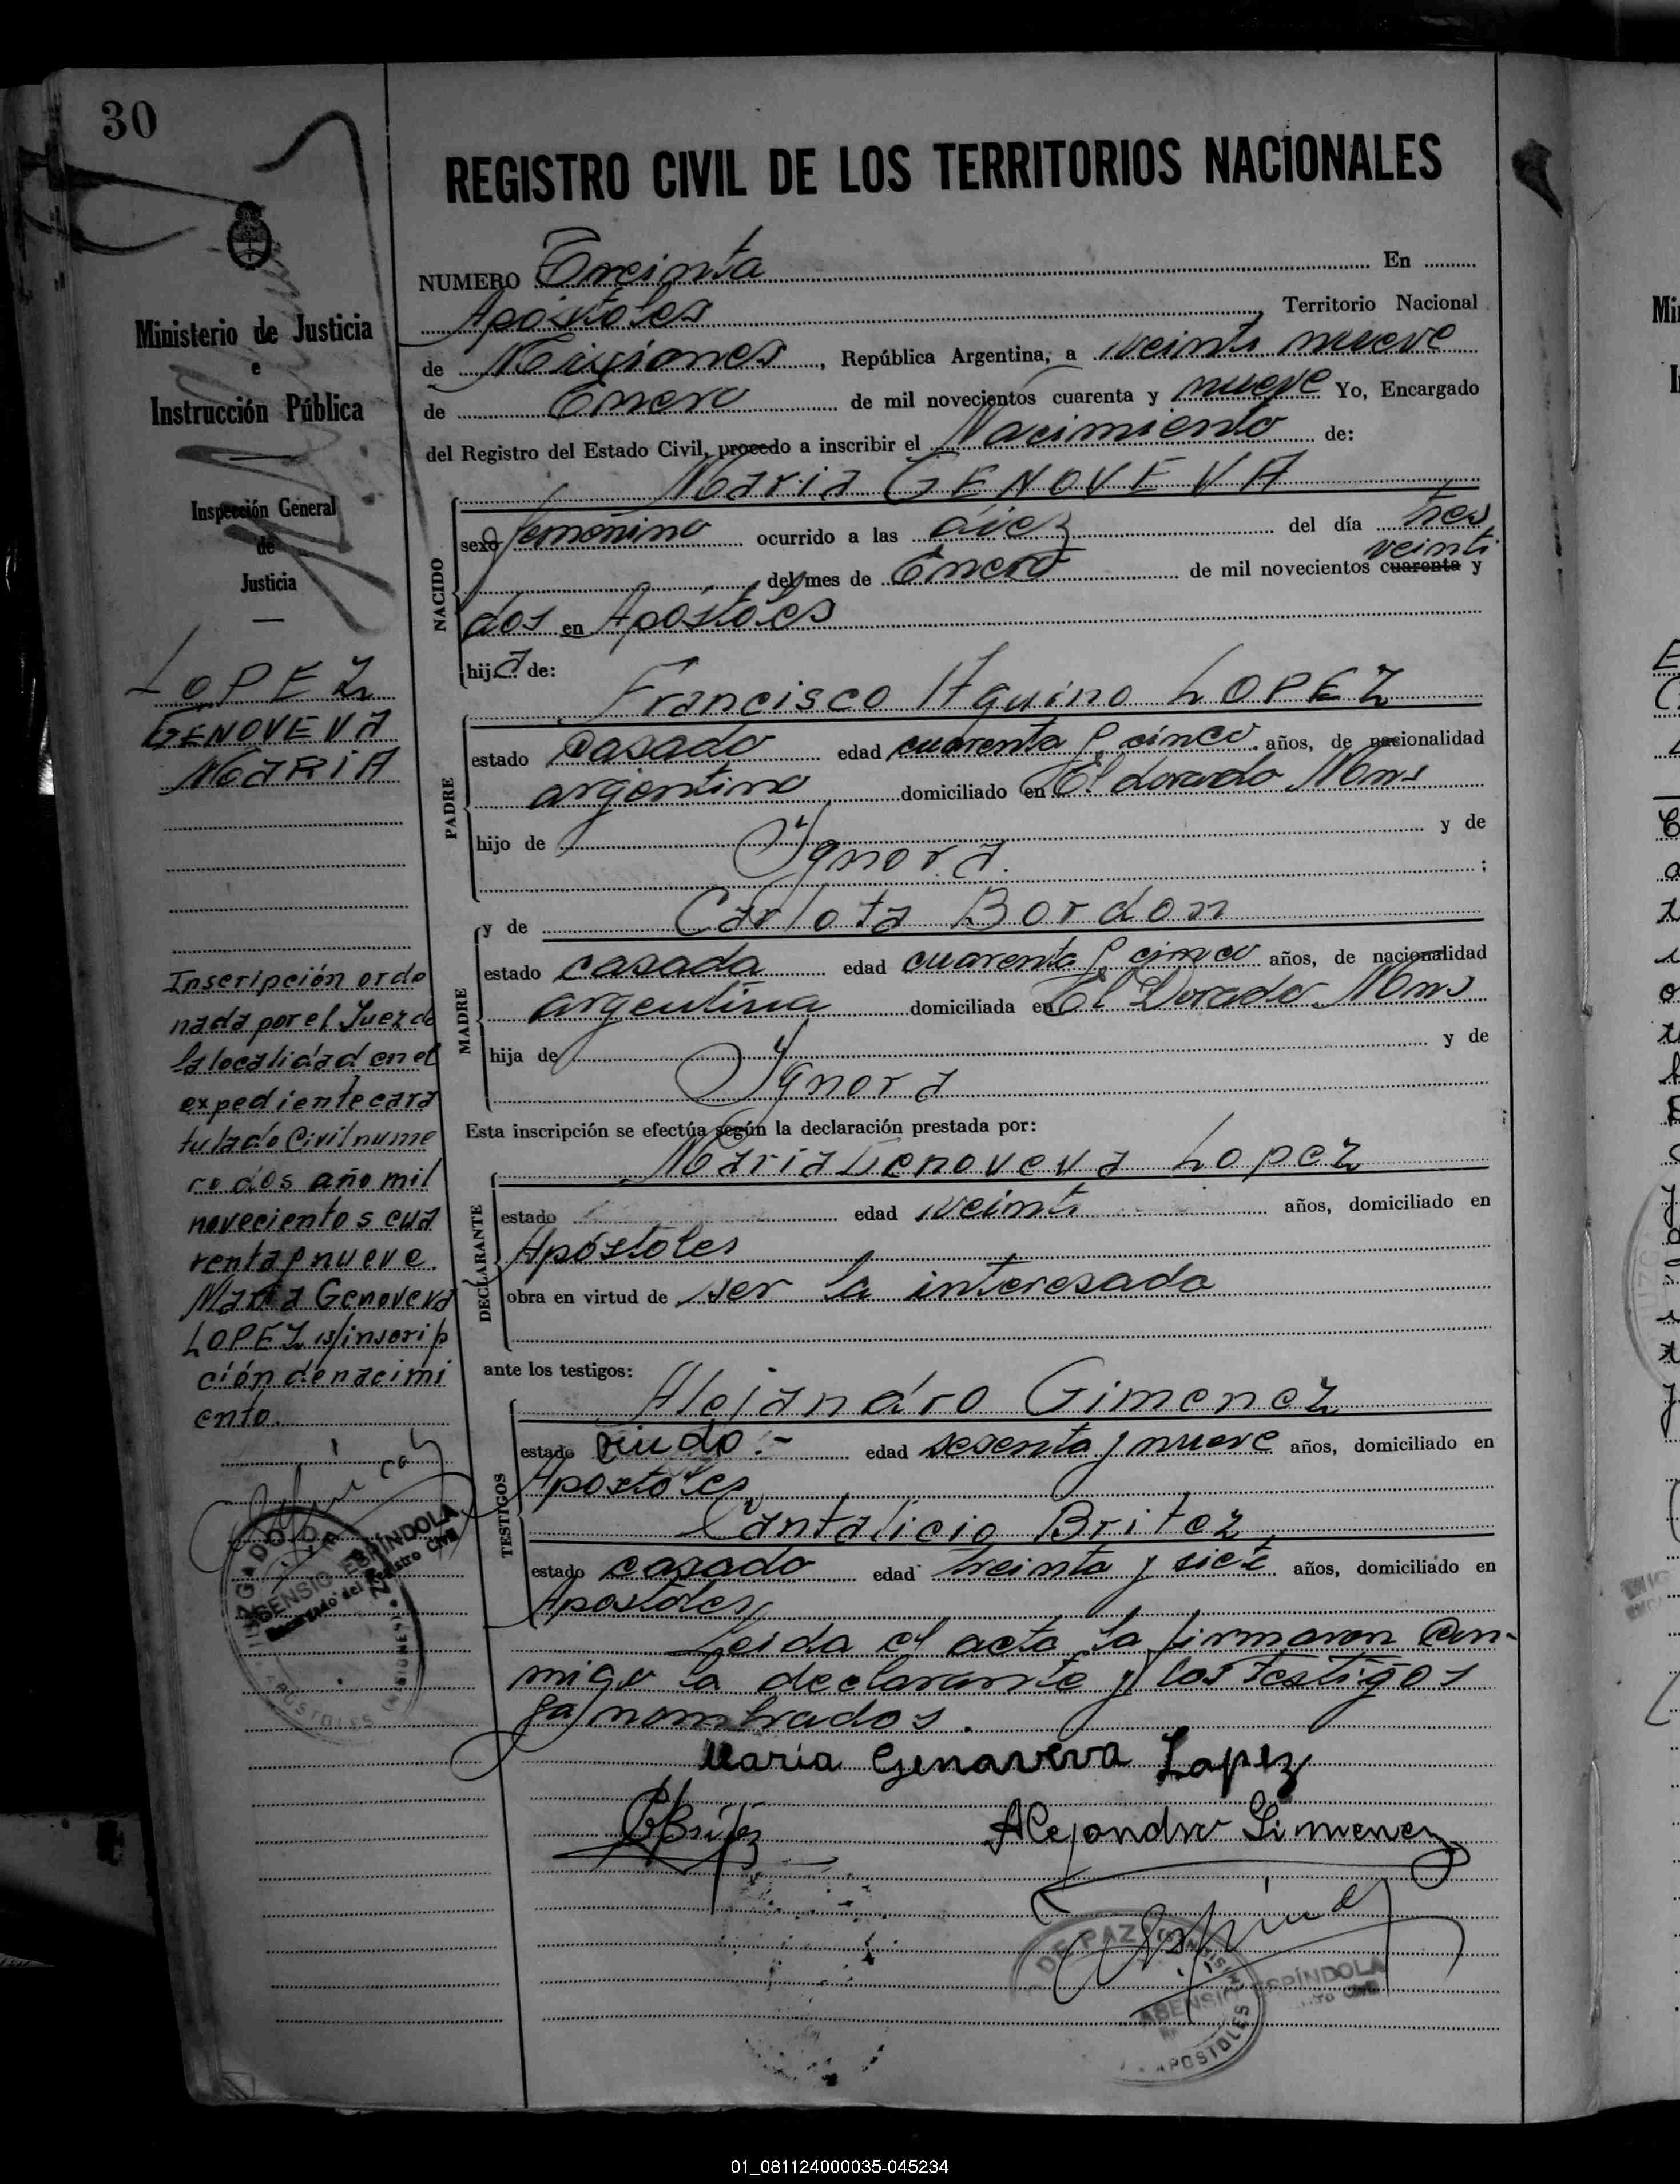 30
REGISTRO CIVIL DE LOS TERRITORIOS NACIONALES
Ministerio de Justicia
e
Instrucción Pública
Inspección General
de
Justicia
LOPEZ
GENOVEVA
MARIA
Inscripción orde
nada por el Juez de
la localidad en el
expediente cara
tulado Civil nume
ro dos año mil
novecientos cua
renta y nueve.
Maria Genoveva
LOPEZ s/inscrip
ción de nacimi
ento.
ASENSIO ESPÍNDOLA
Encargado del Registro Civil
NUMERO Treinta En
Apóstoles Territorio Nacional
de Misiones, República Argentina, a veinti nueve
de Enero de mil novecientos cuarenta y nueve Yo, Encargado
del Registro del Estado Civil, procedo a inscribir el Nacimiento de:
Maria GENOVEVA
NACIDO
sexo femenino ocurrido a las diez del día tres
veinti
del mes de Enero de mil novecientos cuarenta y
dos en Apóstoles
hija de:
Francisco Aquino LOPEZ
PADRE
estado casado edad cuarenta y cinco años, de nacionalidad
argentino domiciliado en El dorado Mnes
hijo de y de
Ygnora. ;
y de Carlota Bordon
MADRE
estado casada edad cuarenta y cinco años, de nacionalidad
argentina domiciliada en El Dorado Mnes
hija de y de
Ygnora
Esta inscripción se efectúa según la declaración prestada por:
Maria Genoveva Lopez
DECLARANTE
estado edad veinti años, domiciliado en
Apóstoles
obra en virtud de ser la interesada
ante los testigos:
Alejandro Gimenez
TESTIGOS
estado viudo.- edad sesenta y nueve años, domiciliado en
Apostoles
Cantalicio Britez
estado casado edad treinta y siete años, domiciliado en
Apostoles
Leida el acta la firmaron con-
migo la declarante y los testigos
ya nombrados.
Maria Genoveva Lopez
CBritez
Alejandro Gimenez
DE PAZ
ASENSIO ESPÍNDOLA
APOSTOLES
01_081124000035-045234